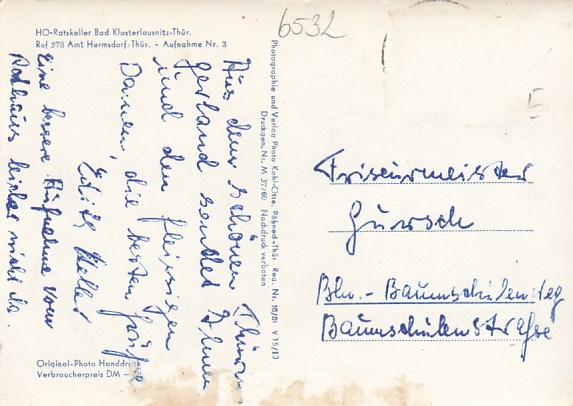 HO-Ratskeller Bad Klosterlausnitz-Thür.
Ruf 578 Amt Hermsdorf-Thür. - Aufnahme Nr. 3
6532
Aus dem schönen Thürin-
gerland sendet Ihnen
und den fleissigen
Damen, die besten Grüße
Edith Keller
Eine bessere Aufnahme vom
Rathaus leider nicht da.
Original-Photo Handdruck
Verbraucherpreis DM –
Photographie und Verlag Photo Kahl-Otte, Pößneck-Thür Reg. Nr. 18/61 V 15/13
Druckgen. Nr. M 37/60 Nachdruck verboten
Friseurmeister
Gursch
Bln.-Baumschulenweg
Baumschulenstraße
E